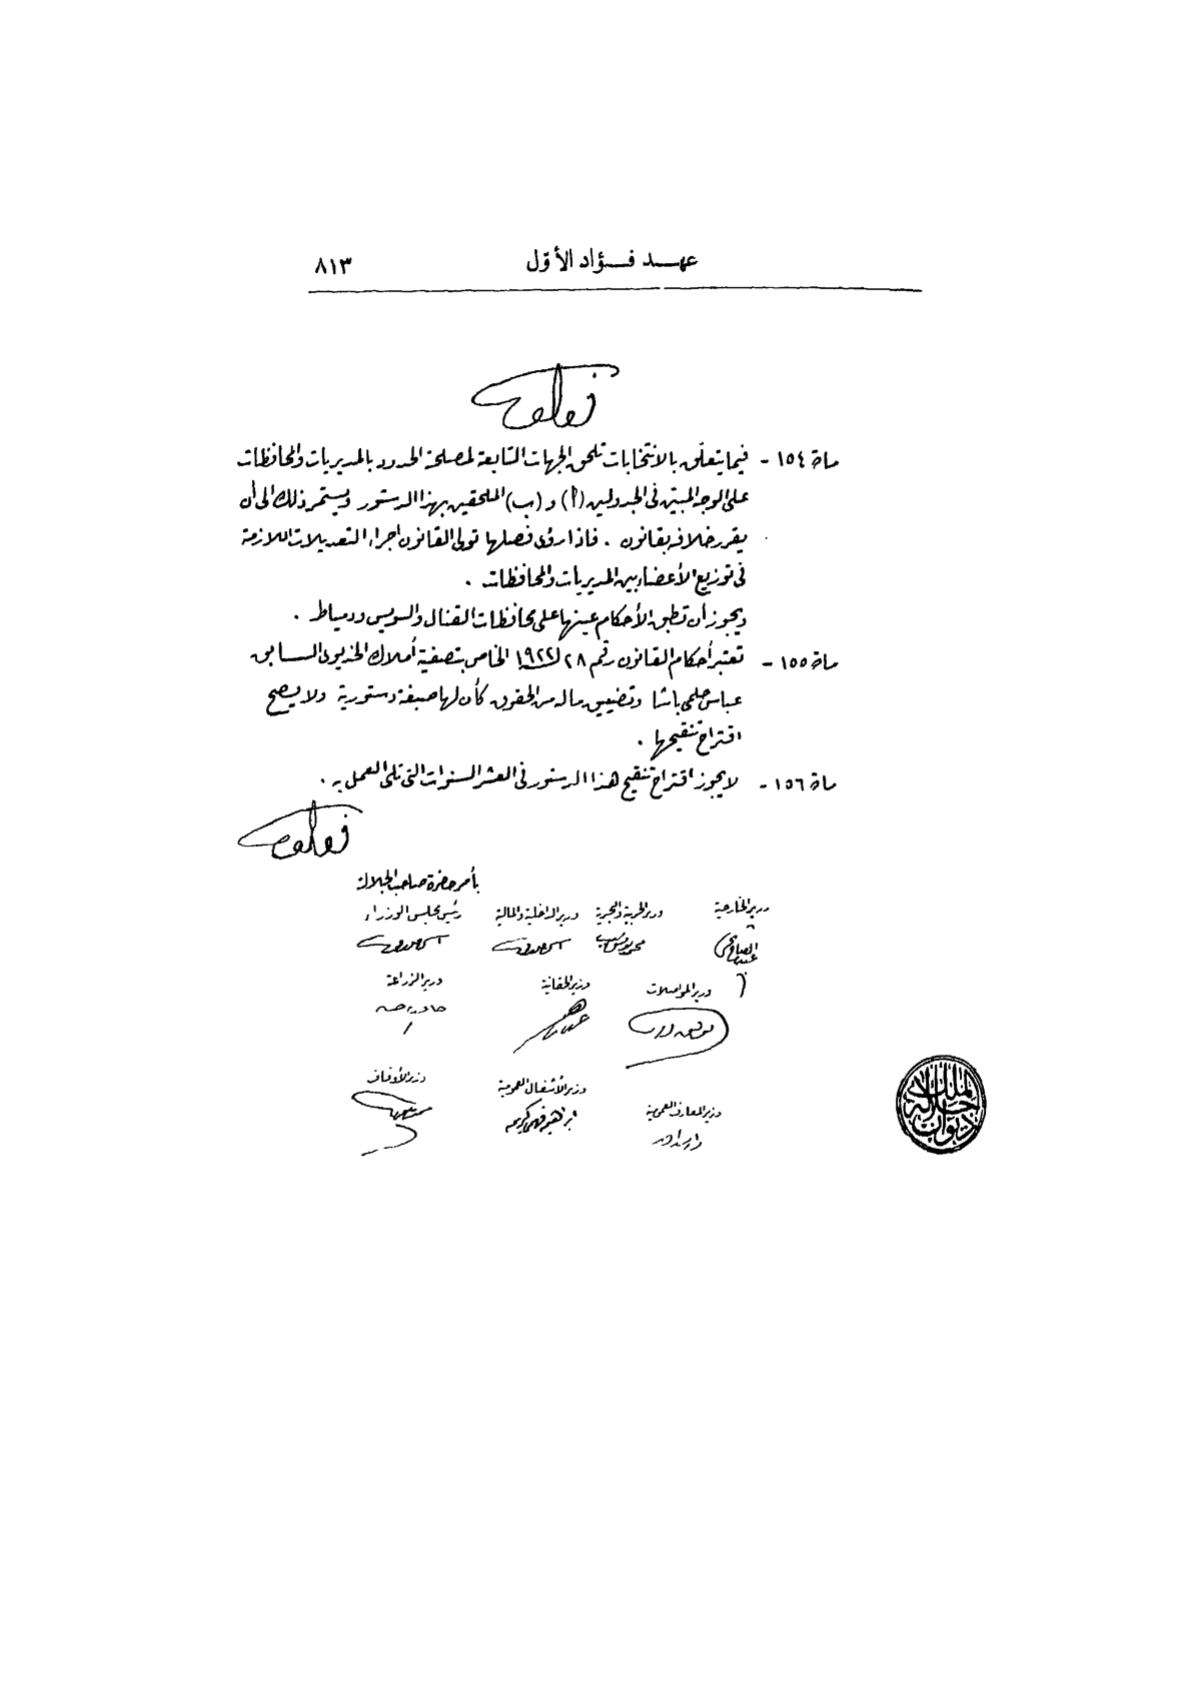 عهد فؤاد الأوّل ٨١٣
فؤاد
مادة ١٥٤ - فيما يتعلّق بالانتخابات تلحق الجهات التابعة لمصلحة الحدود بالمديريات والمحافظات
على الوجه المبيّن فى الجدولين (أ) و (ب) الملحقين بهذا الدستور ويستمر ذلك الى أن
يقرر خلافه بقانون . فاذا رؤى فصلها تولى القانون اجراء التعديلات اللازمة
فى توزيع الأعضاء بين المديريات والمحافظات .
ويجوز أن تطبق الأحكام عينها على محافظات القنال والسويس ودمياط .
مادة ١٥٥ - تعتبر أحكام القانون رقم ٢٨ لسنة ١٩٢٢ الخاص بتصفية أملاك الخديوى السابق
عباس حلمى باشا وتضييق ماله من الحقوق كأن لها صبغة دستورية ولا يصح
اقتراح تنقيحها .
مادة ١٥٦ - لا يجوز اقتراح تنقيح هذا الدستور فى العشر السنوات التى تلى العمل به .
فؤاد
بأمر حضرة صاحب الجلالة
وزير الخارجية وزير الحربية والبحرية وزير الداخلية والمالية رئيس مجلس الوزراء
وزير المواصلات وزير الحقانية وزير الزراعة
وزير المعارف العمومية وزير الأشغال العمومية وزير الأوقاف
ابراهيم فهمى كريم
ديوان جلالة الملك